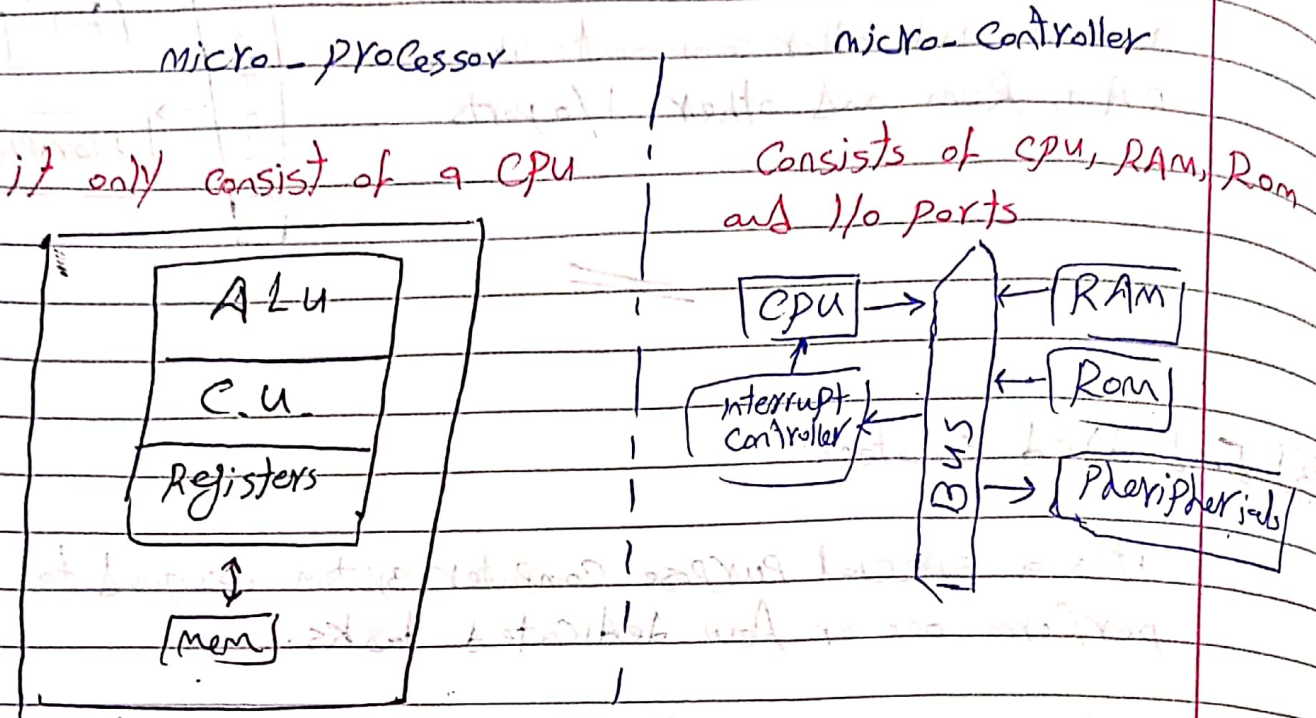 micro-processor
it only consist of a CPU
ALU
C.U.
Registers
mem
micro-Controller
Consists of CPU, RAM, Rom
and I/o ports
CPU
RAM
interrupt
controller
Rom
Bus
Pheripherials